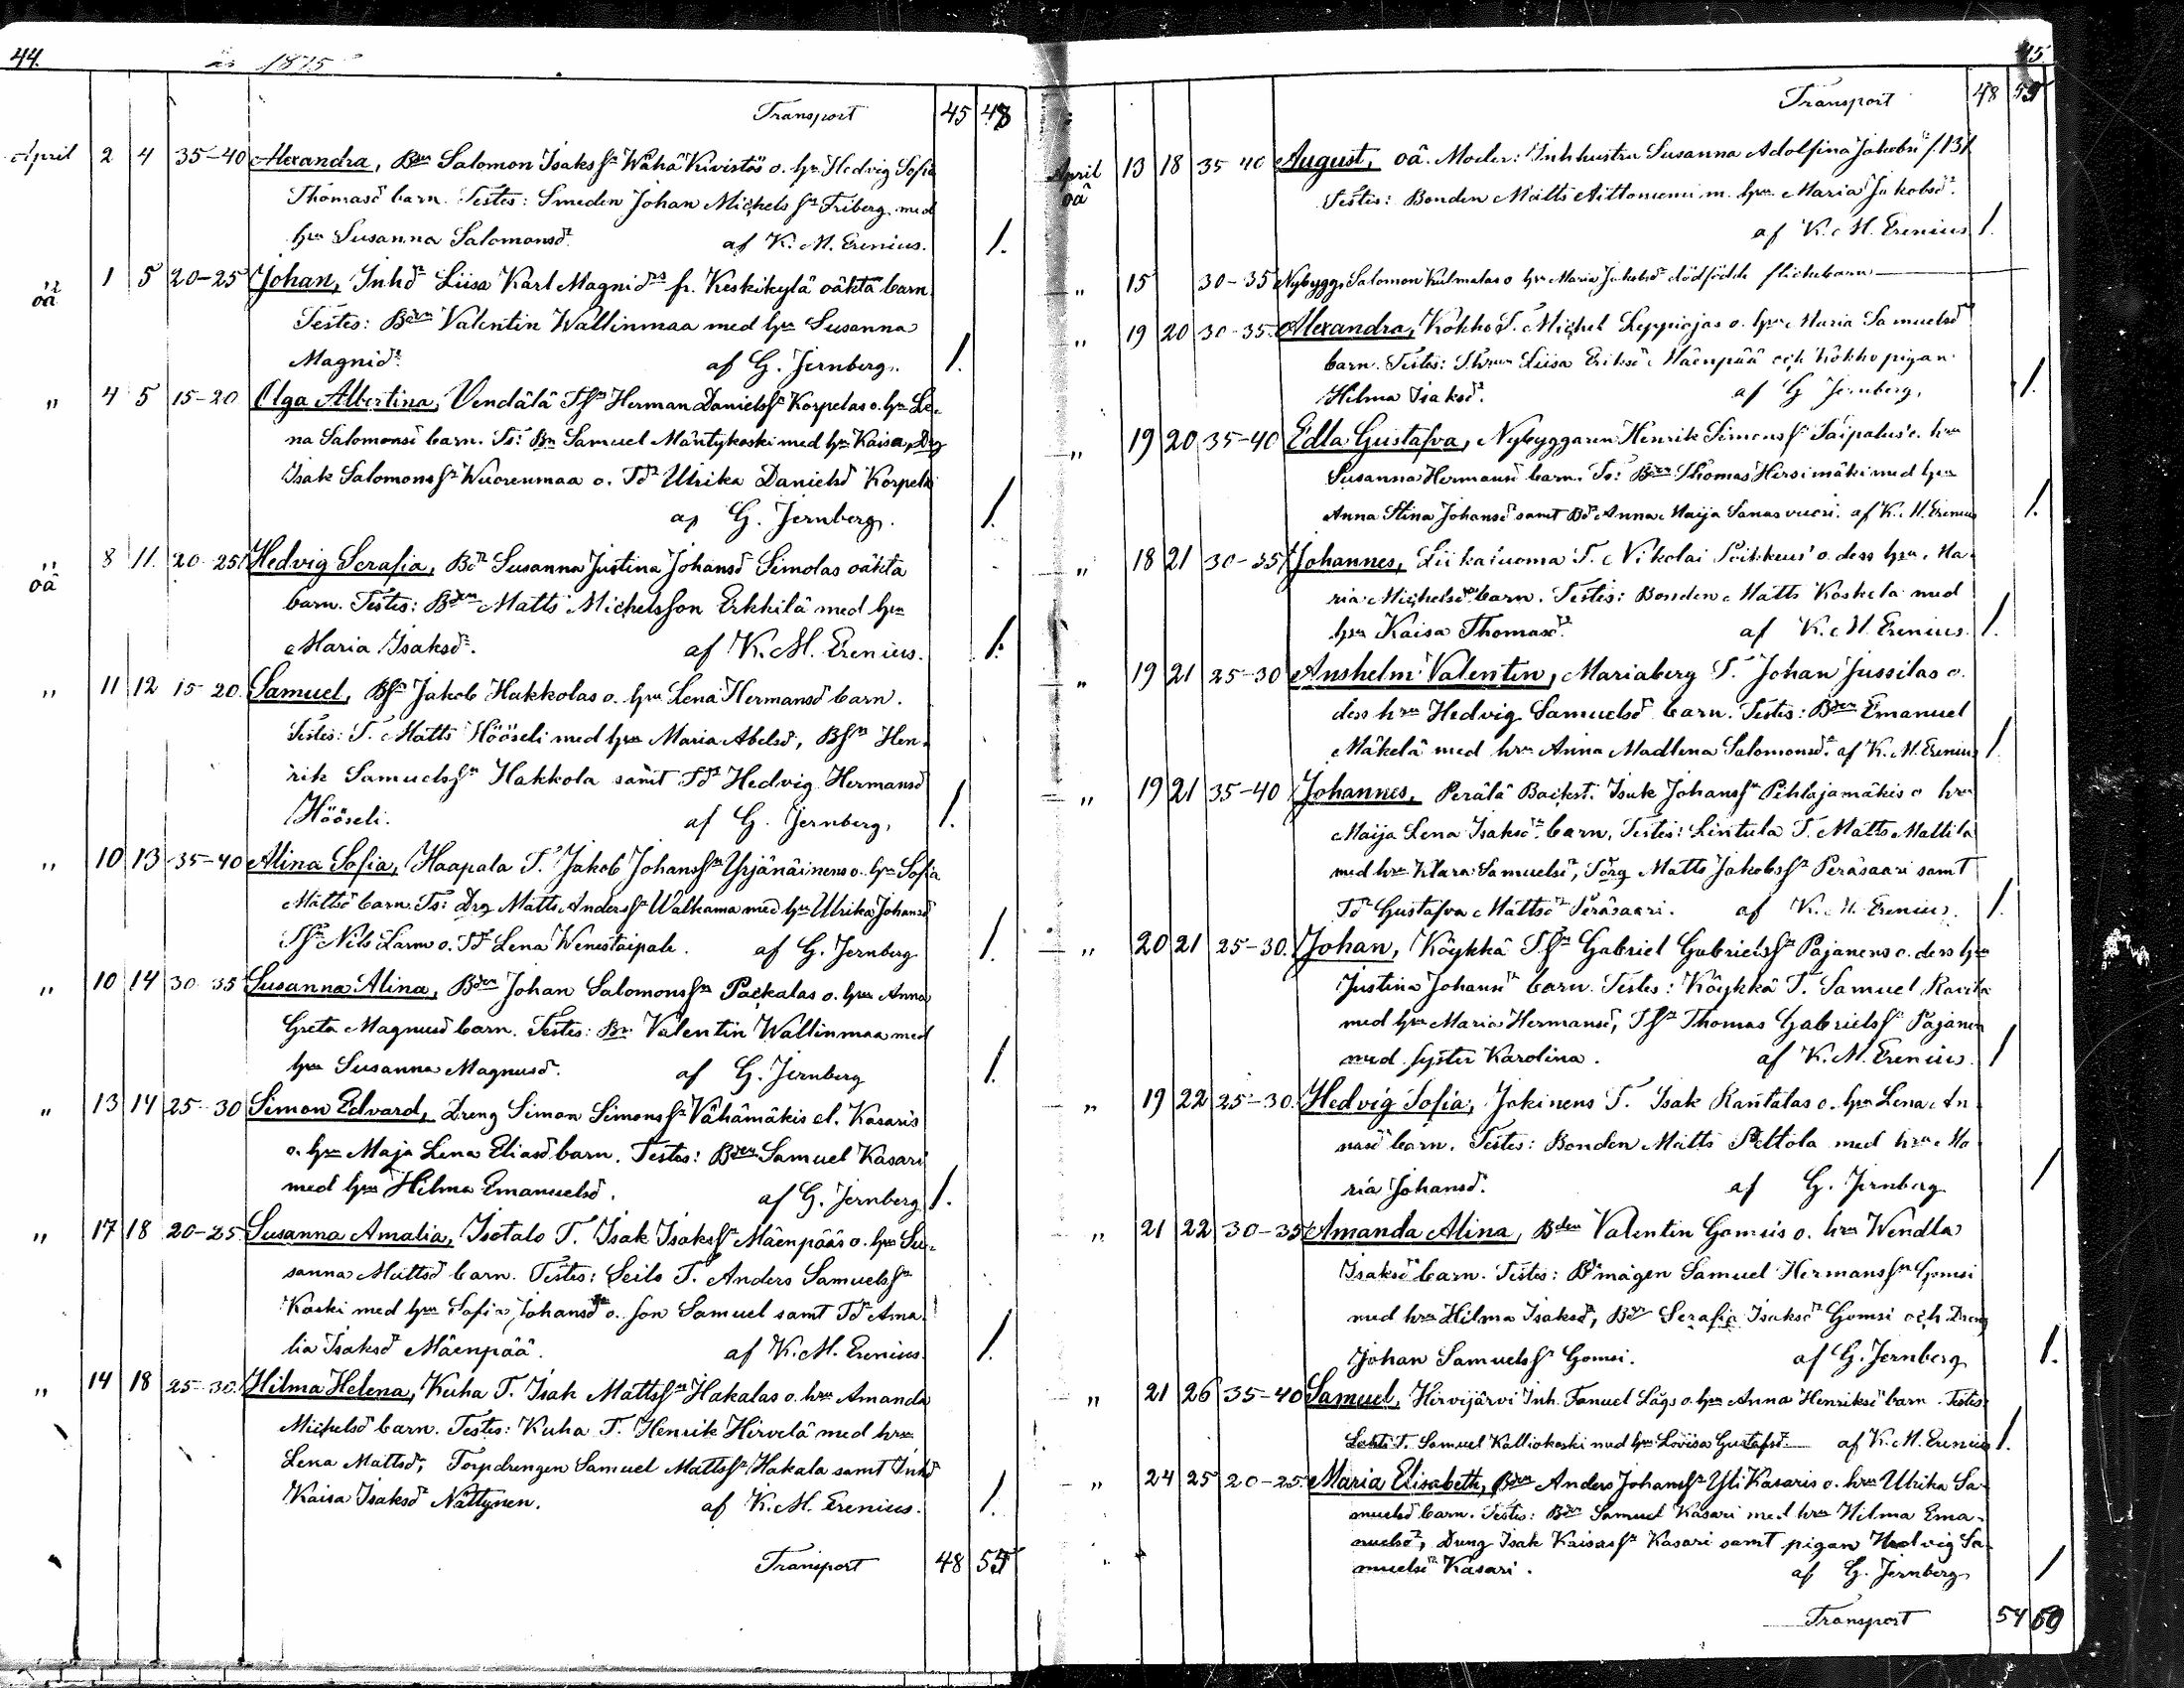 44.
år 1875
Transport 45 48
April 2 4 35-40 Alexandra, Bdn Salomon Isakssn Wähä Kivistös o. hu Hedvig Sofia
Thomasd barn. Testes: Smeden Johan Michelssn Friberg med
hu Susanna Salomonsdr. af K. M. Erenius. 1.
" oä 1 5 20-25 Johan, Inhdr Liisa Karl Magnidrs fr. Keskikylä oäkta barn.
Testes: Bdn Valentin Wallinmaa med hu Susanna
Magnidr. af G. Jernberg. 1.
" 4 5 15-20 Olga Albertina, Vendälä Tssn Herman Danielssn Korpelas o. hu Le-
na Salomonsd barn. Ts: Bn Samuel Mäntykoski med hu Kaisa, Drg
Isak Salomonssn Wuorenmaa o. Tdr Ulrika Danielsd Korpela
af G. Jernberg. 1.
" oä 8 11. 20-25 Hedvig Serafia, Bdr Susanna Justina Johansd Simolas oäkta
barn. Testes: Bden Matts Michelsson Erkkilä med hu
Maria Isaksdr. af K. M. Erenius. 1.
" 11 12 15-20. Samuel, Bssn Jakob Hakkolas o. hu Lena Hermansd barn.
Testes: T. Matts Höösli med hu Maria Abelsd, Bssn Hen-
rik Samuelssn Hakkola samt Tdr Hedvig Hermansd
Hööseli. af G. Jernberg, 1.
" 10 13 35-40 Alina Sofia, Haapala T. Jakob Johanssn Yrjänäinens o. hu Sofia
Mattsd barn. Ts: Drg Matts Anderssn Walkama med hu Ulrika Johansd
Tssn Nils Larmo o. Tdr Lena Wenestaipale. af G. Jernberg 1.
" 10 14 30-35 Susanna Alina, Bden Johan Salomonssn Packalas o. hu Anna
Greta Magnusd barn. Testes: Bn Valentin Wallinmaa med
hu Susanna Magnusd. af G. Jernberg 1.
" 13 14 25-30 Simon Edvard, Dreng Simon Simonssn Vähämäkis el. Kasaris
o. hu Maja Lena Eliasd barn. Testes: Bden Samuel Kasari
med hu Hilma Emanuelsd. af G. Jernberg 1.
" 17 18 20-25 Susanna Amalia, Isotalo T. Isak Isakssn Mäenpääs o. hu Su-
sanna Mattsd barn. Testes: Seilo T. Anders Samuelssn
Koski med hu Sofia Johansdr o. son Samuel samt Tdr Ama
lia Isaksd Mäenpää. af K. M. Erenius. 1.
" 14 18 25-30. Hilma Helena, Kuha T. Isak Mattssn Hakalas o. hru Amanda
Michelsd barn. Testes: Kuha T. Henrik Hirvelä med hru
Lena Mattsd, Torpdrengen Samuel Mattssn Hakala samt Inhd
Kaisa Isaksd Nättynen. af K. M. Erenius. 1.
Transport 48 55
45
Transport 48 55
April oä 13 18 35-40 August, oä. Moder: Inhhustru Susanna Adolfina Jakobsd /.13/.
Testis: Bonden Matts Aittoniemi m. hu Maria Jakobsdr.
af K. M. Erenius 1.
" 15 30-35 Nybygg. Salomon Kulmalas o hu Maria Jakobsdr dödfödde flickebarn
" 19 20 30-35. Alexandra, Kokko T. Michel Leppiojas o. hu Maria Samuelsd
barn. Testis: Thrun Liisa Eriksd Mäenpää och Kokko pigan
Hilma Isaksdr. af G Jernberg, 1.
" 19 20 35-40 Edla Gustafva, Nybyggaren Henrik Simonssn Saipalus o. hru
Susanna Hermansd barn. Ts: Bden Thomas Hirsimäki med hu
Anna Stina Johansd samt Bdr Anna Maija Sanasvuori. af K. M. Erenius 1.
" 18 21 30-35 Johannes, Liikaluoma T. Nikolai Poikkeus o. dess hu Ma-
ria Michelsd barn. Testes: Bonden Matts Koskela med
hu Kaisa Thomasdr. af K. M. Erenius. 1.
" 19 21 25-30 Anshelm Valentin, Mariaberg T. Johan Jussilas o.
dess hru Hedvig Samuelsd barn. Testis: Bden Emanuel
Mäkelä med hru Anna Madlena Salomonsdr. af K. M. Erenius 1.
" 19 21 35-40 Johannes, Perälä Backst. Isak Johanssn Pihlajamäkis o hru
Maija Lena Isaksd barn, Testis: Lintula T. Matts Mattila
med hru Klara Samuelsd, Tdrg Matts Jakobssn Peräsaari samt
Tdr Gustafva Mattsdr Peräsaari. af K. M. Erenius. 1.
" 20 21 25-30. Johan, Köykkä Tssn Gabriel Gabrielssn Pajanens o. dess hu
Justina Johansd barn. Testes: Köykkä T. Samuel
med hu Maria Hermansd, Tssn Thomas Gabrielssn Pajanen
med syster Karolina. af K. M. Erenius. 1
" 19 22 25-30. Hedvig Sofia, Jokinens T. Isak Rantalas o. hu Lena An
nasd barn. Testes: Bonden Matts Peltola med hru Ma
ria Johansd. af G. Jernberg 1
" 21 22 30-35 Amanda Alina, Bden Valentin Gomsis o. hru Wendla
Isaksd barn. Testes: Bmågen Samuel Hermanssn Gomsi
med hru Hilma Isaksd, Bdr Serafia Isaksd Gomsi och Dreng
Johan Samuelssn Gomsi. af G. Jernberg 1.
" 21 26 35-40 Samuel, Hirvijärvi Inh. Fanuel Lågs o. hu Anna Henriksd barn. Testes:
Lahti T. Samuel Kalliokoski med hu Lovisa Gustafsd. af K. M. Erenius 1.
" 24 25 20-25. Maria Elisabeth, Bden Anders Johanssn Yli Kasaris o. hru Ulrika Sa-
muelsd barn. Testes: Bdn Samuel Kasari med hru Hilma Ema-
nuelsd, Dreng Isak Kaisassn Kasari samt pigan Hedvig Sa-
muelsd Kasari. af G. Jernberg 1
Transport 54 60